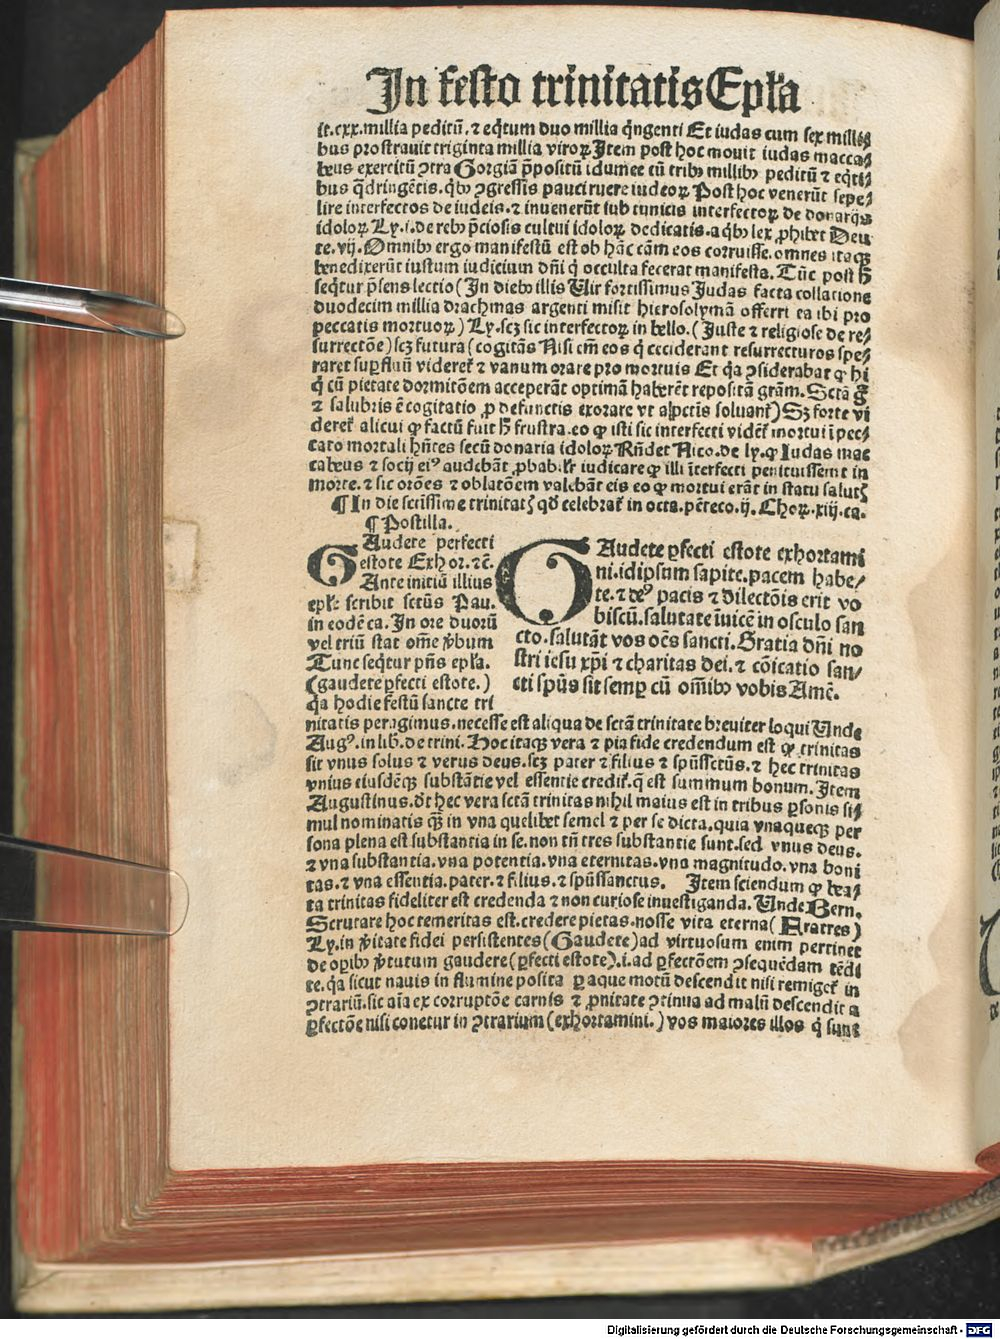 In festo trinitatis Epľa
it.cxx.millia peditū.⁊ eq̄tum duo millia q̄ngenti Et iudas cum sex milli⸗
bus prostrauit triginta millia viroꝝ Item post hoc mouit iudas macca⸗
beus exercitū ꝯtra Gorgiā p̄positū idumee cū tribꝰ millibꝰ peditū ⁊ eq̄ti⸗
bus q̄dringētis.q̄bꝰ ꝯgressis pauci ruere iudeoꝝ Post hoc venerūt sepe⸗
lire interfectos de iudeis.⁊ inuenerūt sub tunicis interfectoꝝ de donarijs
idoloꝝ Ly.i.de rebꝰ p̄ciosis cultui idoloꝝ dedicatis.a q̄bꝰ lex ꝓhibet Deu
te.vij.Omnibꝰ ergo manifestū est ob hāc cām eos corruisse.omnes itaqꝫ
benedixerūt iustum iudicium dn̄i q̄ occulta fecerat manifesta. Tūc post ħ
seq̄tur p̄sens lectio (In diebꝰ illis Uir fortissimus Judas facta collatione
duodecim millia drachmas argenti misit hierosolymā offerri ea ibi pro
peccatis mortuoꝝ) Ly.scꝫ sic interfectoꝝ in bello.(Juste ⁊ religiose de re⸗
surrectōe) scꝫ futura (cogitās Nisi em̄ eos q̄ ceciderant resurrecturos spe⸗
raret suꝑfluū videret̄ ⁊ vanum orare pro mortuis Et q̄a ꝯsiderabat ꝙ hi
q̄ cū pietate dormitōem acceperāt optimā haberēt repositā grām. Sctā g̊
⁊ salubris ē cogitatio ꝓ defunctis exorare vt a p̄ctīs soluant̄) Sꝫ forte vi
deret̄ alicui ꝙ factū fuit ħ frustra.eo ꝙ isti sic interfecti vident̄ mortui ī pec⸗
cato mortali hn̄tes secū donaria idoloꝝ Rn̄det Nico.de ly.ꝙ Iudas mac
cabeus ⁊ socij eiꝰ audebāt ꝓbabiľr iudicare ꝙ illi īterfecti penituissent in
morte.⁊ sic orōes ⁊ oblatōem valebāt eis eo ꝙ mortui erāt in statu salutꝭ
¶ In die sctissime trinitatꝭ qđ celebrat̄ in octa.pēteco.ij.Choꝝ.xiij.ca.
¶ Postilla.
Gaudete perfecti
estote Exhor.⁊c̄.
Ante initiū illius
epľe scribit sctūs Pau.
in eodē ca.In ore duorū
vel triū stat om̄e v̄bum
Tunc seq̄tur pn̄s epľa.
(gaudete ꝑfecti estote.)
q̄a hodie festū sancte tri
Gaudete ꝑfecti estote exhortami
ni.idipsum sapite.pacem habe⸗
te.⁊ deꝰ pacis ⁊ dilectōis erit vo
biscū.salutate īuicē in osculo san
cto.salutāt vos oēs sancti.Gratia dn̄i no
stri iesu xp̄i ⁊ charitas dei.⁊ cōicatio san⸗
cti sp̄us sit semꝑ cū om̄ibꝰ vobis Amē.
nitatis peragimus.necesse est aliqua de sctā trinitate breuiter loqui Unde
Augꝰ.in lib.de trini.Hoc itaqꝫ vera ⁊ pia fide credendum est ꝙ trinitas
sit vnus solus ⁊ verus deus.scꝫ pater ⁊ filius ⁊ sp̄ussctūs.⁊ hec trinitas
vnius eiusdēqꝫ substātie vel essentie credit̄.q̄ est summum bonum. Item
Augustinus.dt hec vera sctā trinitas nihil maius est in tribus ꝑsonis si⸗
mul nominatis qꝫ in vna quelibet semel ⁊ per se dicta.quia vnaqueqꝫ per
sona plena est substantia in se.non tn̄ tres substantie sunt.sed vnus deus.
⁊ vna substantia.vna potentia.vna eternitas.vna magnitudo.vna boni
tas.⁊ vna essentia.pater.⁊ filius.⁊ sp̄ussanctus. Item sciendum ꝙ bea⸗
ta trinitas fideliter est credenda ⁊ non curiose inuestiganda. Unde Bern.
Scrutare hoc temeritas est.credere pietas.nosse vita eterna (Fratres)
Ly.in v̄itate fidei persistentes (Gaudete) ad virtuosum enim pertinet
de oꝑibꝰ v̄tutum gaudere (ꝑfecti estote).i.ad ꝑfectōem ꝯsequēdam tēdi
te.q̄a sicut nauis in flumine posita ꝑ aque motū descendit nisi remiget̄ in
ꝯtrariū.sic aīa ex corruptōe carnis ⁊ ꝓnitate ꝯtinua ad malū descendit a
ꝑfectōe nisi conetur in ꝯtrarium (exhortamini.) vos maiores illos q̄ sunt
Digitalisierung gefördert durch die Deutsche Forschungsgemeinschaft - DFG